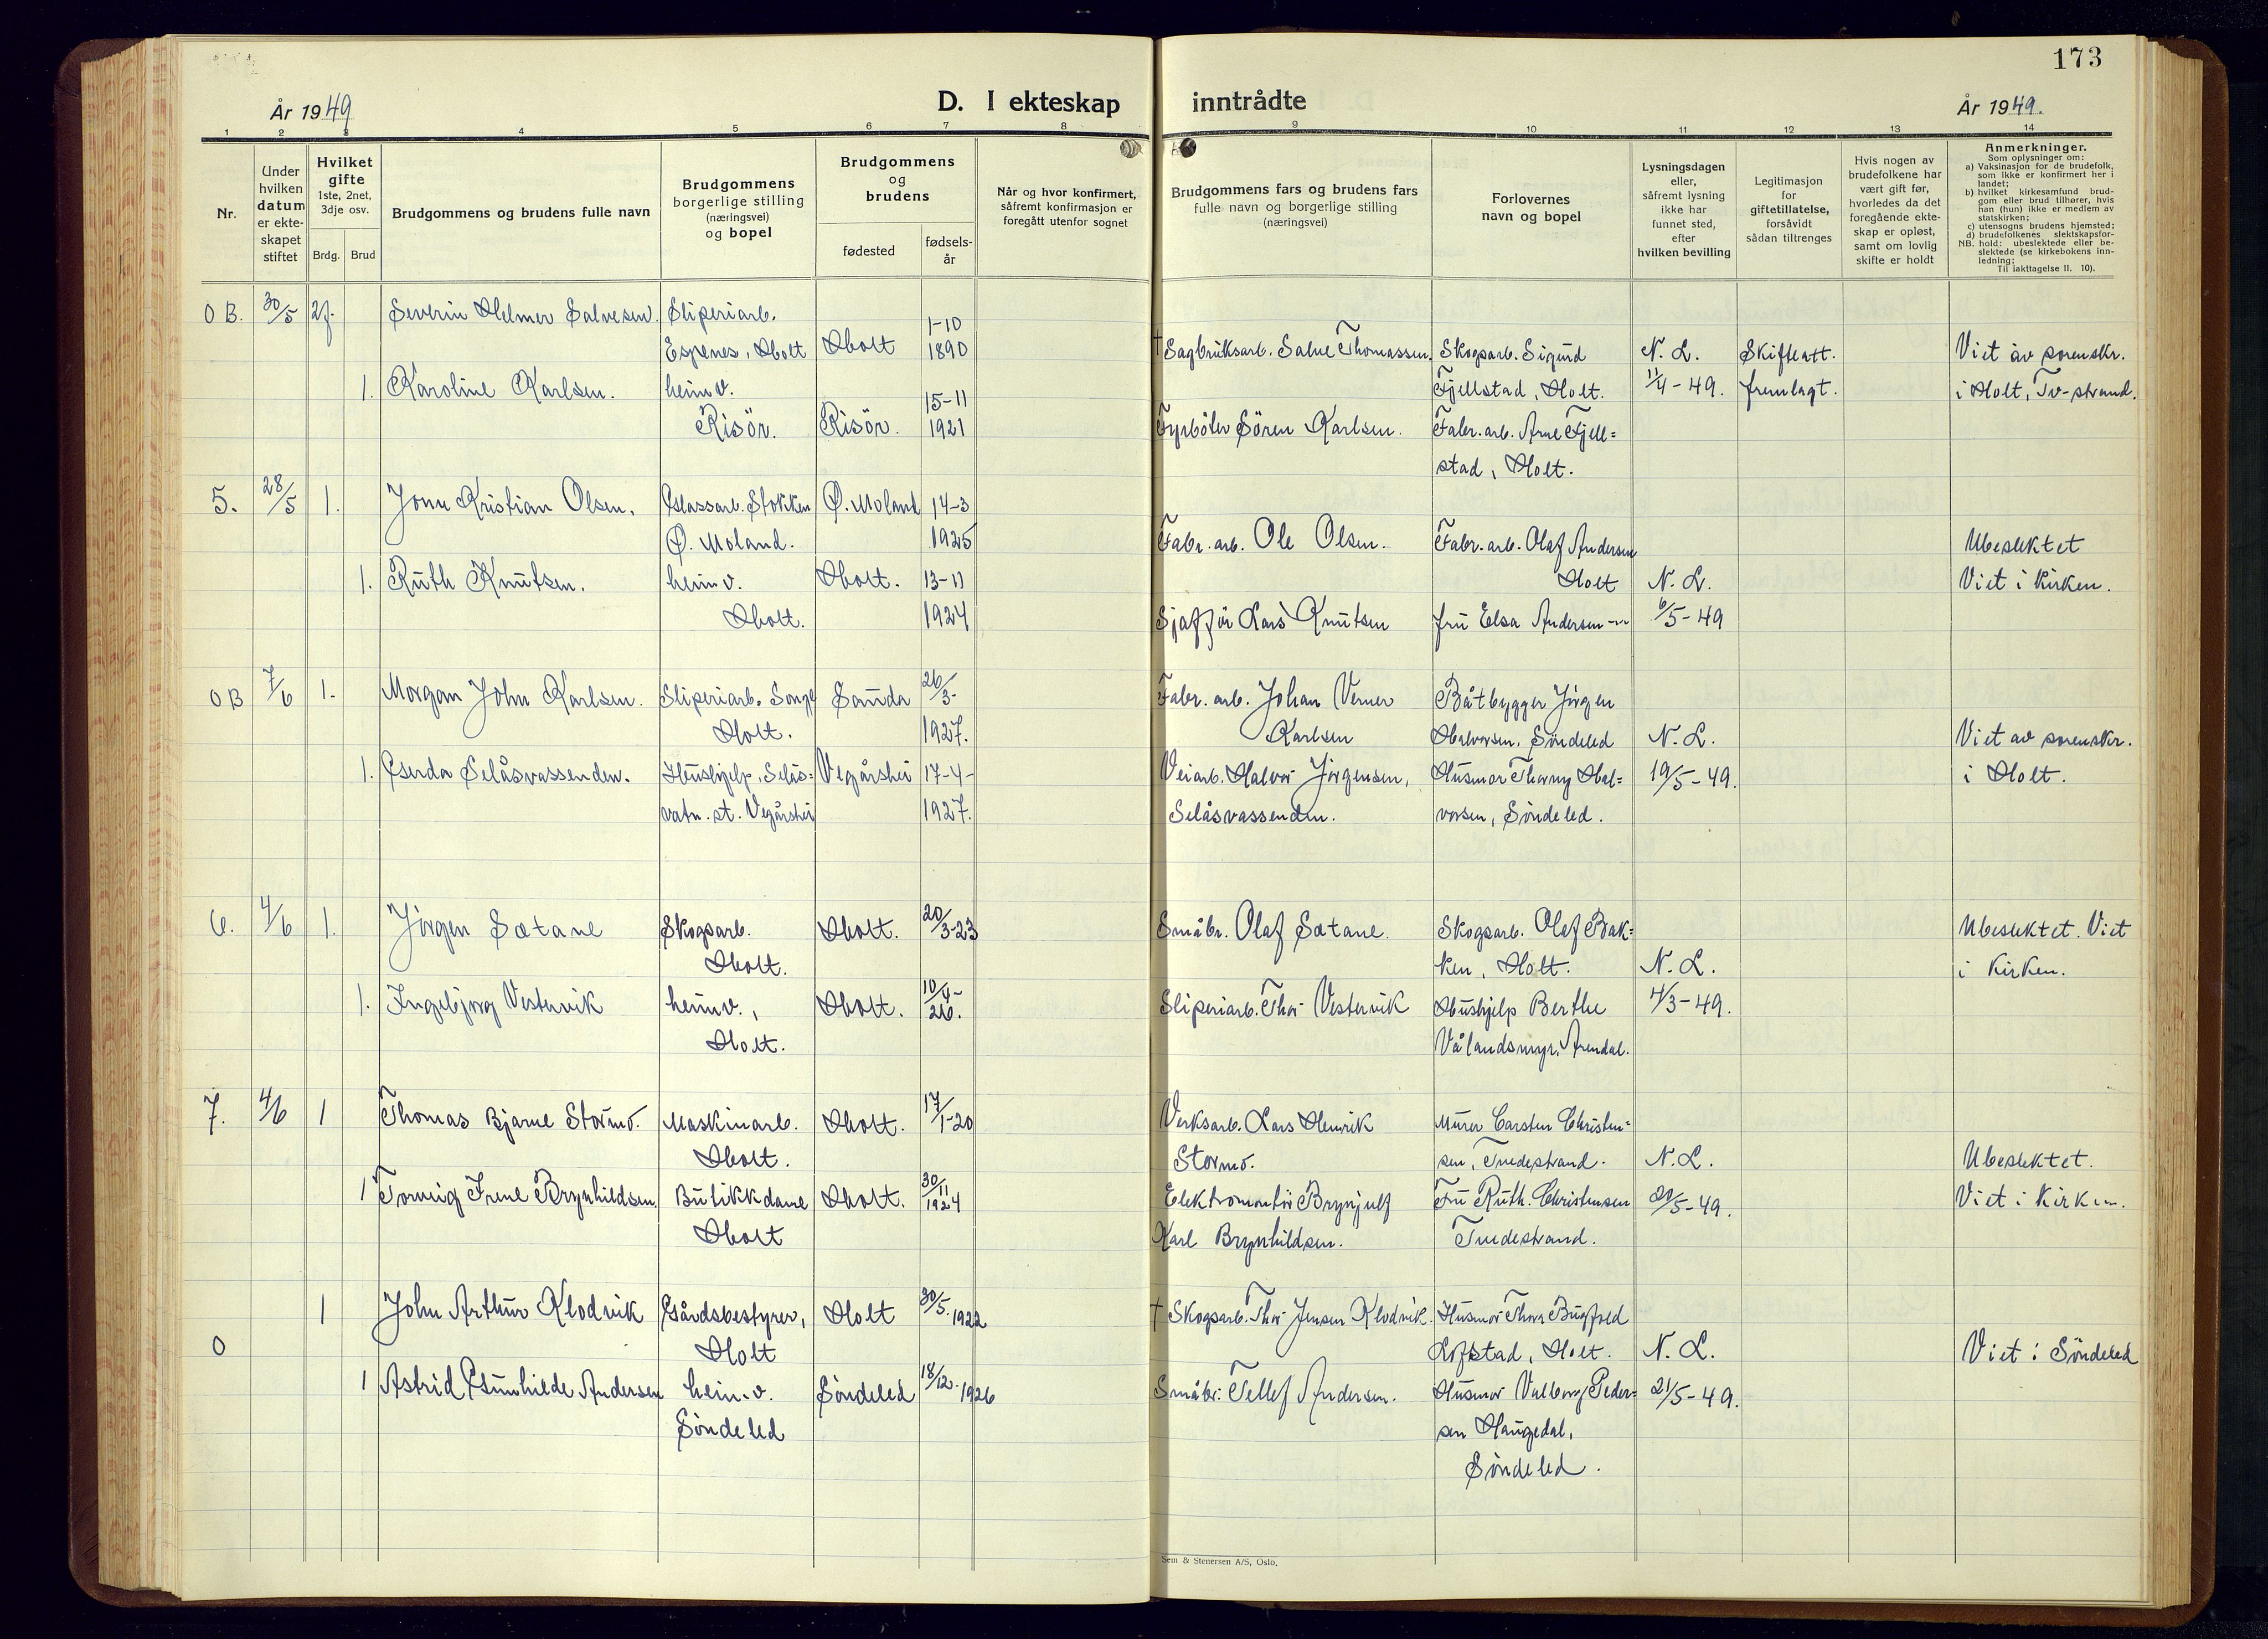 173
År 1949
D. I ekteskap inntrådte
År 1949.
1 2 3 4 5 6 7 8 9 10 11 12 13 14
Nr.
Under hvilken datum er ekteskapet stiftet
Hvilket gifte
1ste, 2net, 3dje osv.
Brdg. Brud
Brudgommens og brudens fulle navn
Brudgommens borgerlige stilling (næringsvei) og bopel
Brudgommens og brudens
fødested
fødsels-år
Når og hvor konfirmert, såfremt konfirmasjon er foregått utenfor sognet
Brudgommens fars og brudens fars fulle navn og borgerlige stilling (næringsvei)
Forlovernes navn og bopel
Lysningsdagen eller, såfremt lysning ikke har funnet sted, efter hvilken bevilling
Legitimasjon for giftetillatelse, forsåvidt sådan tiltrenges
Hvis nogen av brudefolkene har vært gift før, hvorledes da det foregående ekte-skap er opløst, samt om lovlig skifte er holdt
Anmerkninger.
Som oplysninger om:
a) Vaksinasjon for de brudefolk, som ikke er konfirmert her i landet;
b) hvilket kirkesamfund brud-gom eller brud tilhører, hvis han (hun) ikke er medlem av statskirken;
c) utensogns brudens hjemsted;
d) brudefolkenes slektskapsfor-
NB. hold: ubeslektede eller be-slektede (se kirkebokens inn-ledning;
Til iakttagelse II. 10).
O B. 30/5 2g. Severin Helmer Salvesen. Sliperiarb. 1-10
Espenes, Holt Holt 1890 † Sagbruksarb. Salve Thomassen. Skogsarb. Sigurd N. L. Skifteatt. Viet av sorenskr.
1. Karoline Karlsen. heimv. 15-11 Fjellstad, Holt. 11/4-49. fremlagt. i Holt, Tv-strand.
Risör. Risör. 1921 Fyrböter Sören Karlsen. Fabr.arb. Arne Fjell=
stad, Holt.
5. 28/5 1. John Kristian Olsen. Glassarb. Stokken Ø. Moland 14-3
Ø. Moland. 1925 Fabr. arb. Ole Olsen. Fabr. arb. Olaf Andersen Ubeslektet
1. Ruth Knutsen. heimv. Holt. 13-11 Holt N. L. Viet i kirken.
Holt. 1924 Sjafför Lars Knutsen fru Elsa Andersen -"- 6/5-49
O B 7/6 1. Morgan John Karlsen. Sliperiarb. Songe Sannda 26/3- Fabr. arb. Johan Verner Båtbygger Jörgen
Holt. 1927. Karlsen Halvorsen, Söndeled N. L. Viet av sorenskr.
1. Gerda Selåsvassenden. Hushjelp, Selås= Vegårshei 17-4- Veiarb. Halvor Jörgensen, Husmor Thorny Hal= 19/5-49. i Holt.
vatn. st. Vegårshei 1927. Selåsvassenden. vorsen, Söndeled.
6. 4/6 1. Jörgen Sætane Skogsarb. Holt. 20/3-23 Småbr. Olaf Sætane. Skogsarb. Olaf Bak= Ubeslektet. Viet
Holt. ken, Holt. N. L. i kirken.
1. Ingebjorg Vestervik heimv., Holt. 10/4-26. Sliperiarb. Thor Vestervik Hushjelp Berthe 4/3-49.
Holt. Vålandsmyr, Arendal.
7. 4/6 1 Thomas Bjarne Stormo. Maskinarb. Holt. 17/1-20 Verksarb. Lars Henrik Murer Carsten Christen=
Holt. Stormo. sen, Tvedestrand. N. L. Ubeslektet.
1 Tornvig Irene Brynhildsen. Butikkdame Holt. 30/11 1924 Elektromontör Brynjulf Fru Ruth. Christensen 20/5-49. Viet i kirken.
Holt Karl Brynhildsen. Tvedestrand.
1 John Arthur Klodvik Gårdsbestyrer, Holt 30/5. 1922 † Skogsarb. Thor Jensen Klodvik. Husmor Thora
O Holt Lofstad, Holt. N. L. Viet i Söndeled
1 Astrid Gunhilde Andersen heim. v. Söndeled 18/12. 1926 Småbr. Tellef Andersen. Husmor Valborg Peder= 21/5-49.
Söndeled sen Haugedal,
Söndeled.
Sem & Stenersen A/S, Oslo.